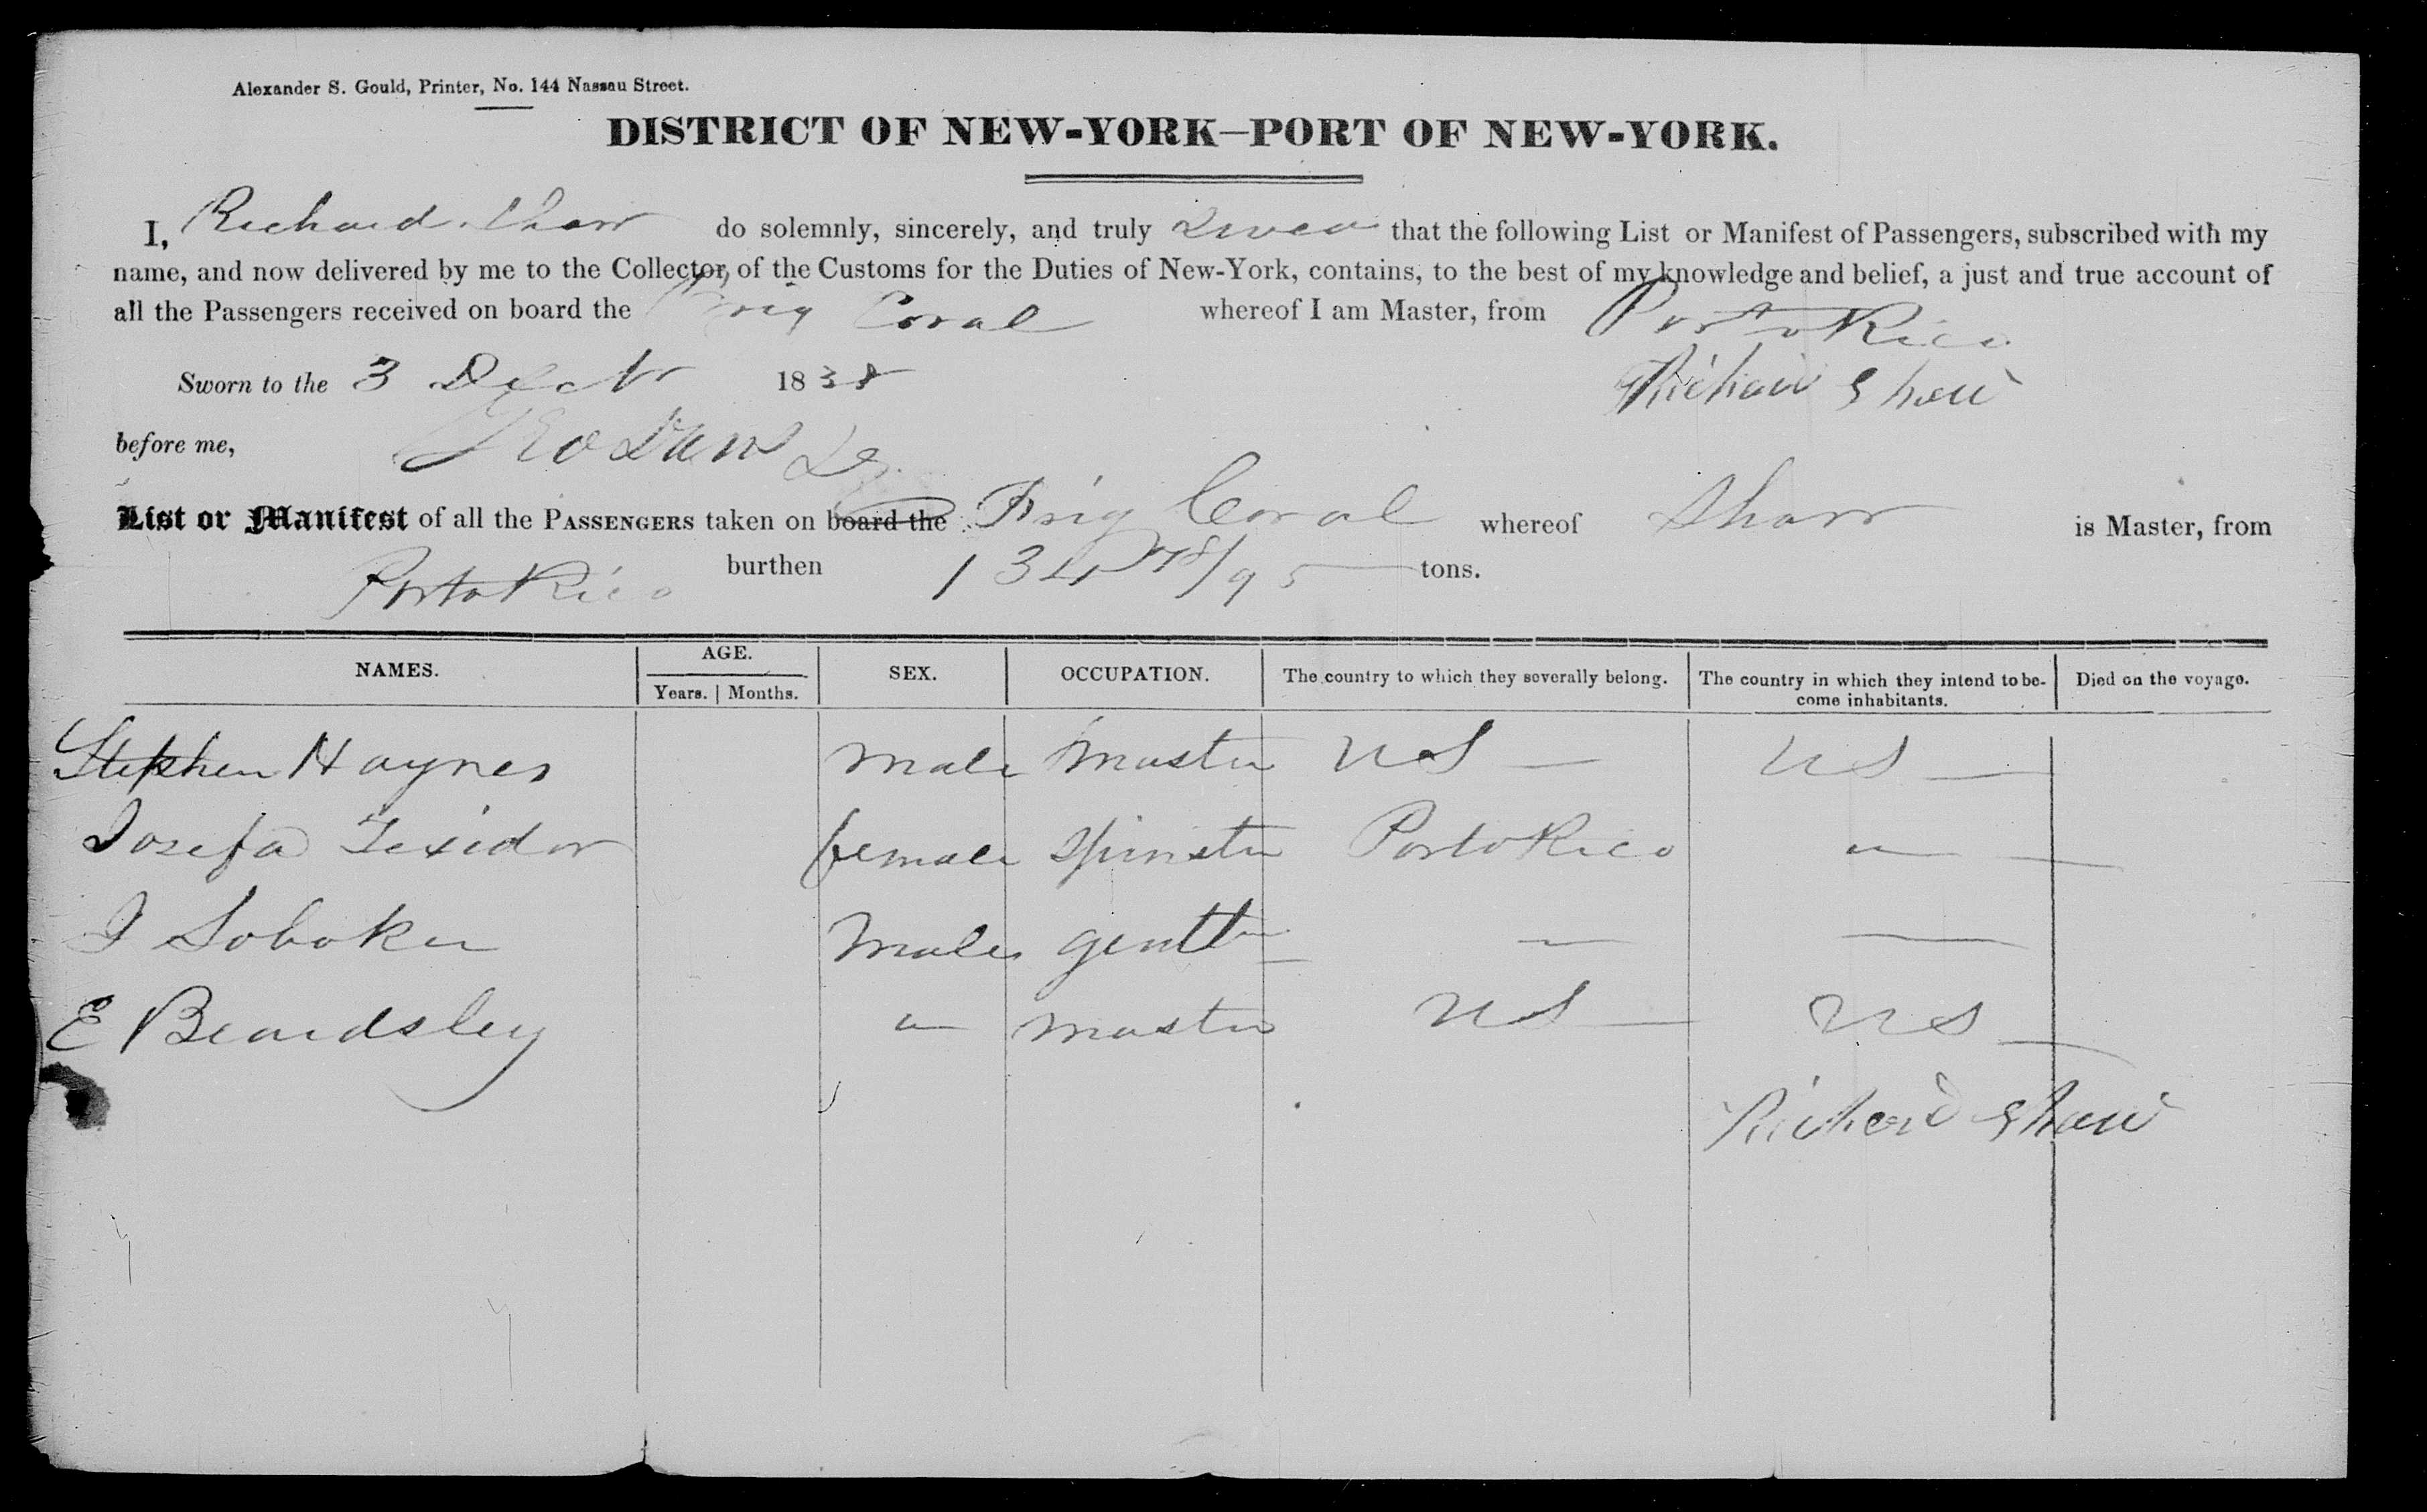 Alexander S. Gould, Printer, No. 144 Nassau Street.
DISTRICT OF NEW-YORK—PORT OF NEW-YORK.
I, Richard Shaw do solemnly, sincerely, and truly swear that the following List or Manifest of Passengers, subscribed with my
name, and now delivered by me to the Collector, of the Customs for the Duties of New-York, contains, to the best of my knowledge and belief, a just and true account of
all the Passengers received on board the Brig Coral whereof I am Master, from Porto Rico
Sworn to the 3 Decr 1838 Richard Shaw
before me,
List or Manifest of all the PASSENGERS taken on board the Brig Coral whereof Shaw is Master, from
Porto Rico burthen 134 78/95 tons.
NAMES. AGE. SEX. OCCUPATION. The country to which they severally belong. The country in which they intend to be- Died on the voyage.
Years. | Months. come inhabitants.
Stephen Haynes male master US — US —
Josefa Texidor female spinster Porto Rico " —
J Soboker Males gentln — —
E Beardsley " master US — US —
Richard Shaw